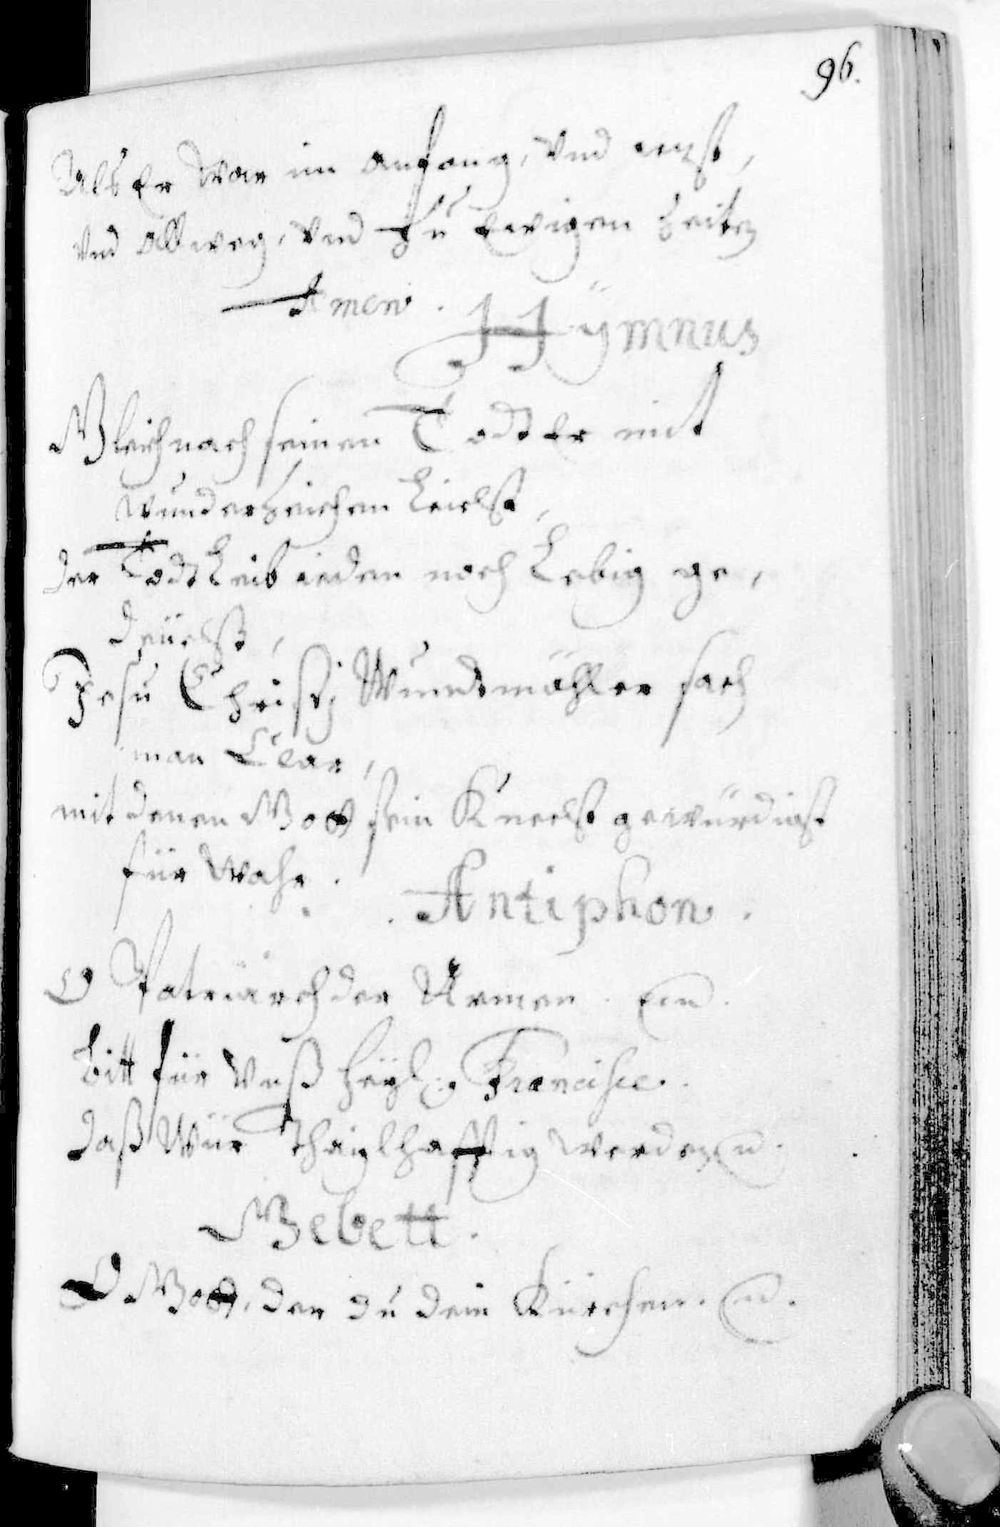 96.
Als Er war im anfang, Vnd ietzt,
Vnd Allweg, Vnd Zu Ewigen Zeiten
Amen.
Hÿmnus
Gleich nach seinen Todt Er mit
wunderzeichen leicht,
der Todt Leib ieden noch Lebig ge,
deücht,
Jesu Christj Wundtmähler sach
man Clar,
mit denen Gott sein Knecht gewürdigt
für Wahr.
Antiphon.
O Patriarch der Armen. etc.
bitt für Vnß heÿl: Francisce.
daß Wür thaÿlhafftig werden etc.
Gebett.
O Gott, der du dein Kürchen. etc.